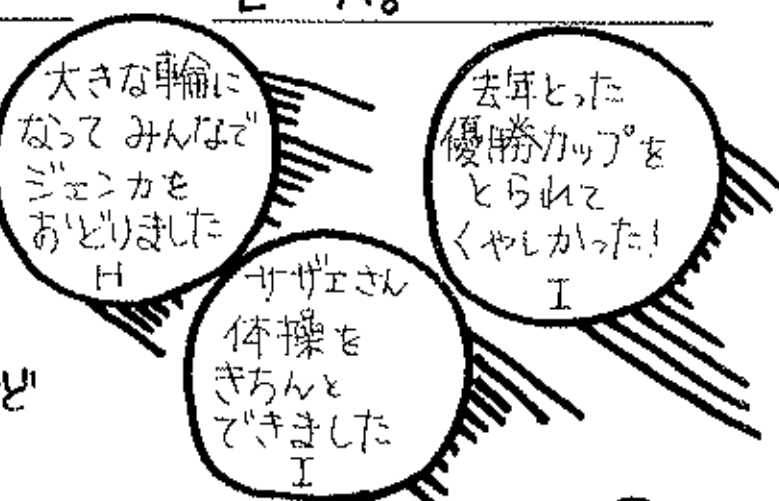 大きな輪に
なって みんなで
ジェンカを
おどりました
H
去年とった
優勝カップを
とられて
くやしかった!
I
サザエさん
体操を
きちんと
できました
I
ど